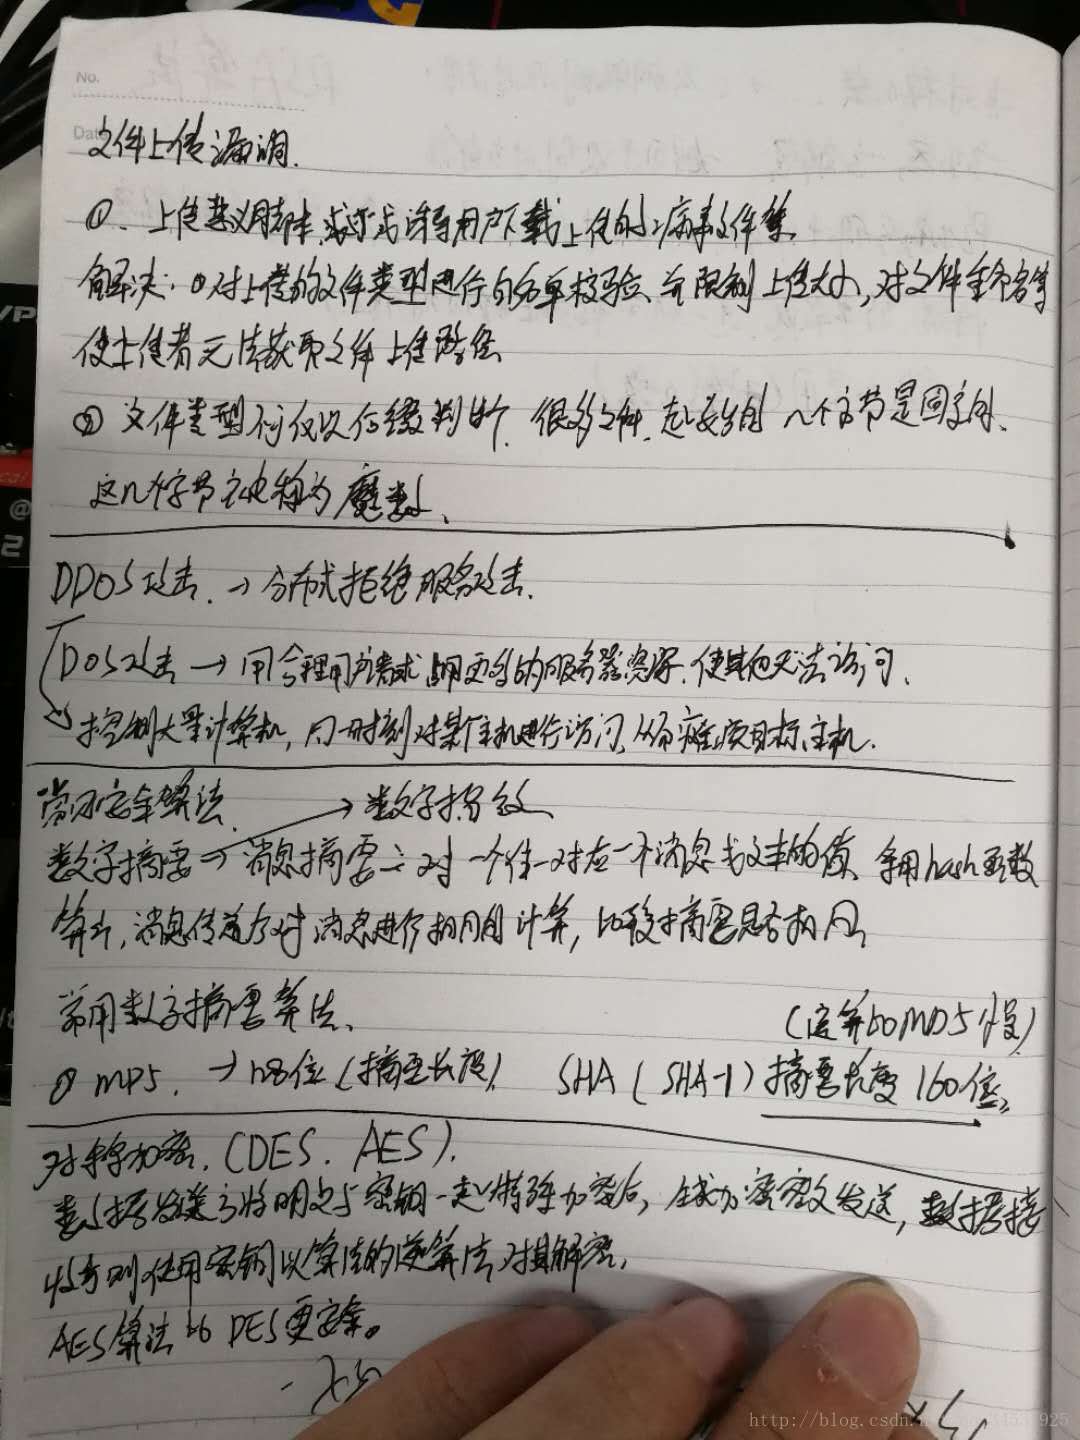 No.
Date
文件上传漏洞.
①. 上传恶意脚本,或方式诱导用户下载上传的病毒文件等.
解决:①对上传的文件类型进行白名单校验、并限制上传大小,对文件重命名等
使上传者无法获取文件上传路径
② 文件类型不仅以后缀判断. 很多文件.起始的几个字节是固定的.
这几个字节被称为魔数、
DDOS攻击.→分布式拒绝服务攻击.
DOS攻击→用合理用户请求占用更多的服务器资源.使其他无法访问.
控制大量计算机,同一时刻对某个主机进行访问,从而瘫痪目标主机.
常用安全算法.
→数字指纹
数字摘要→消息摘要:对一个唯一对应一个消息或文本的值、采用hash函数
算出,消息传递方对消息进行相同的计算,比较摘要是否相同
常用数字摘要算法、
(运算比MD5慢)
① MD5. →128位(摘要长度). SHA(SHA-1)摘要长度160位。
对称加密.(DES. AES).
数据发送方将明文与密钥一起以特殊加密后,生成加密密文发送,数据接
收方则使用密钥以算法的逆算法对其解密,
AES算法比DES更安全。
http://blog.csdn.n
925